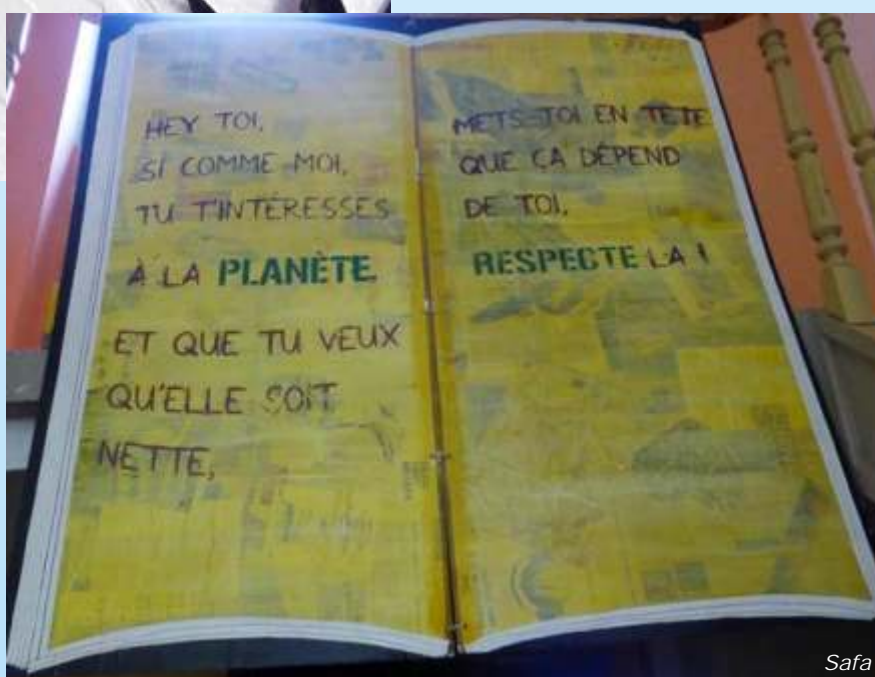 HEY TOI,
SI COMME MOI,
TU T'INTÉRESSES
À LA PLANÈTE
ET QUE TU VEUX
QU'ELLE SOIT
NETTE,
METS-TOI EN TETE
QUE ÇA DÉPEND
DE TOI,
RESPECTE LA !
Safa